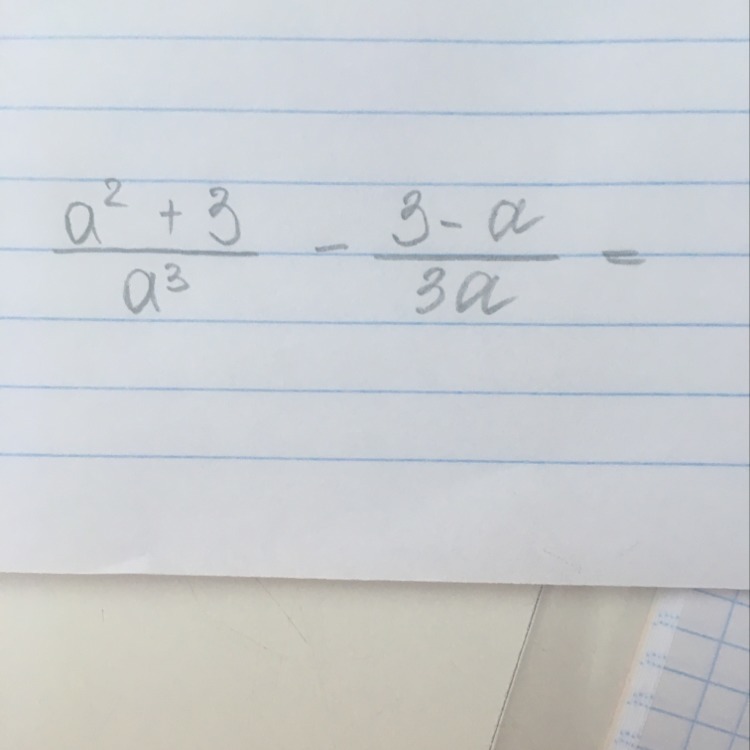 a² + 3 / a³ - 3 - a / 3a =